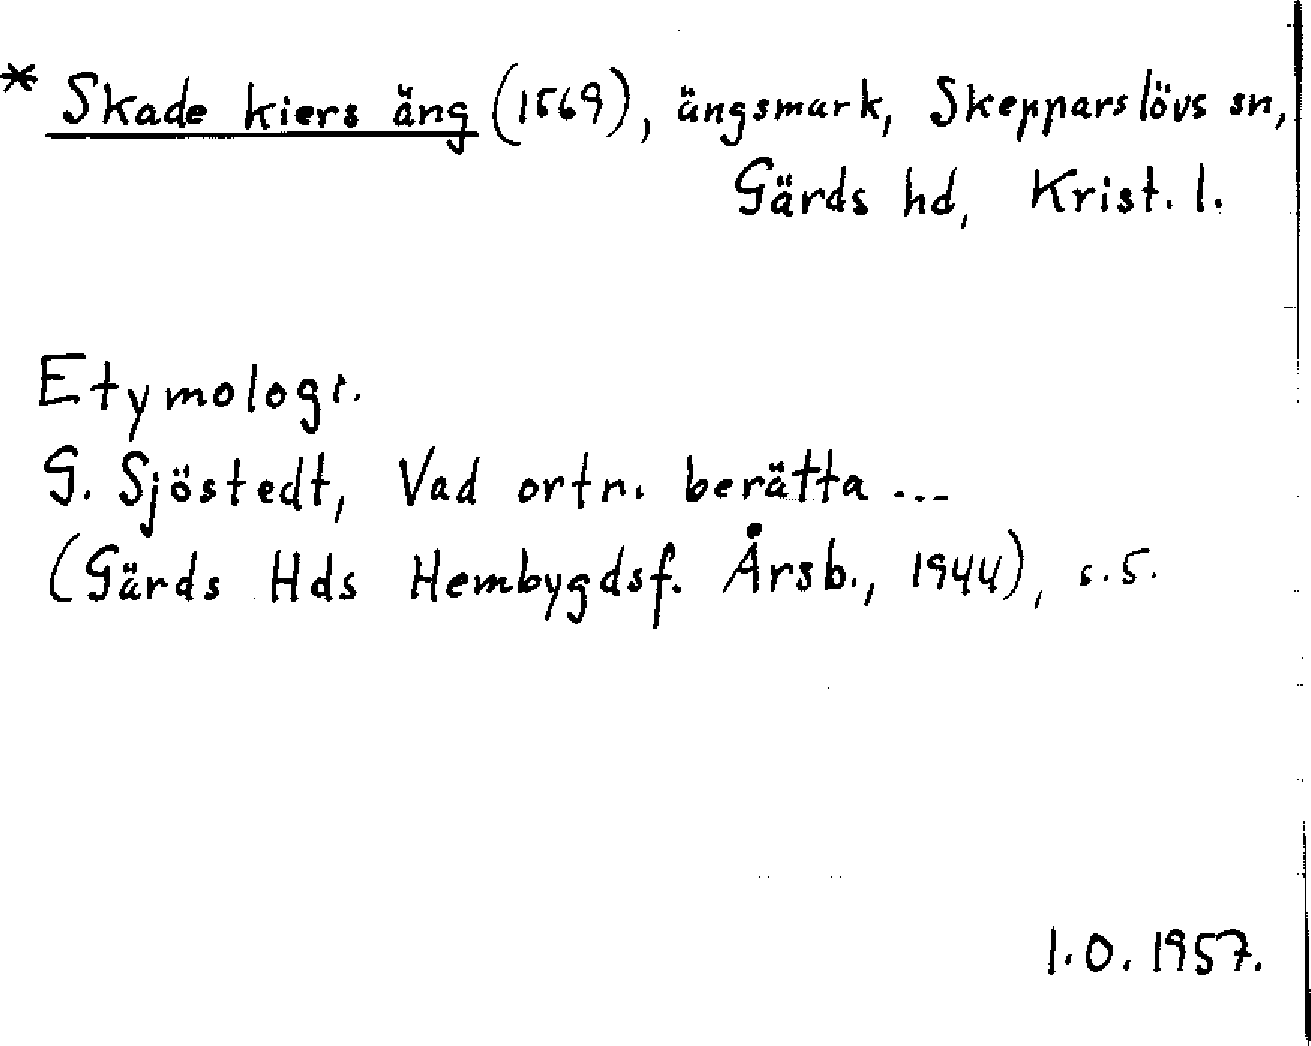 * Skade kiers äng (1569), ängsmark, Skepparslövs sn,
Gärds hd, Krist. l.
Etymologi.
G. Sjöstedt, Vad ortn. berätta ...
(Gärds Hds Hembygdsf. Årsb., 1944), s. 5.
I.O. 1957.